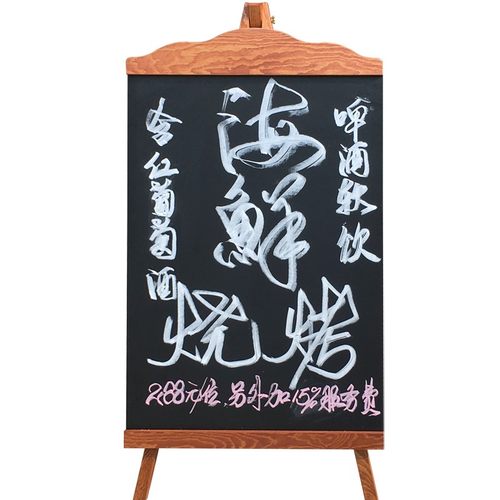 海鲜
烧烤
啤酒软饮
含红葡萄酒
288元/位.另外加15%服务费